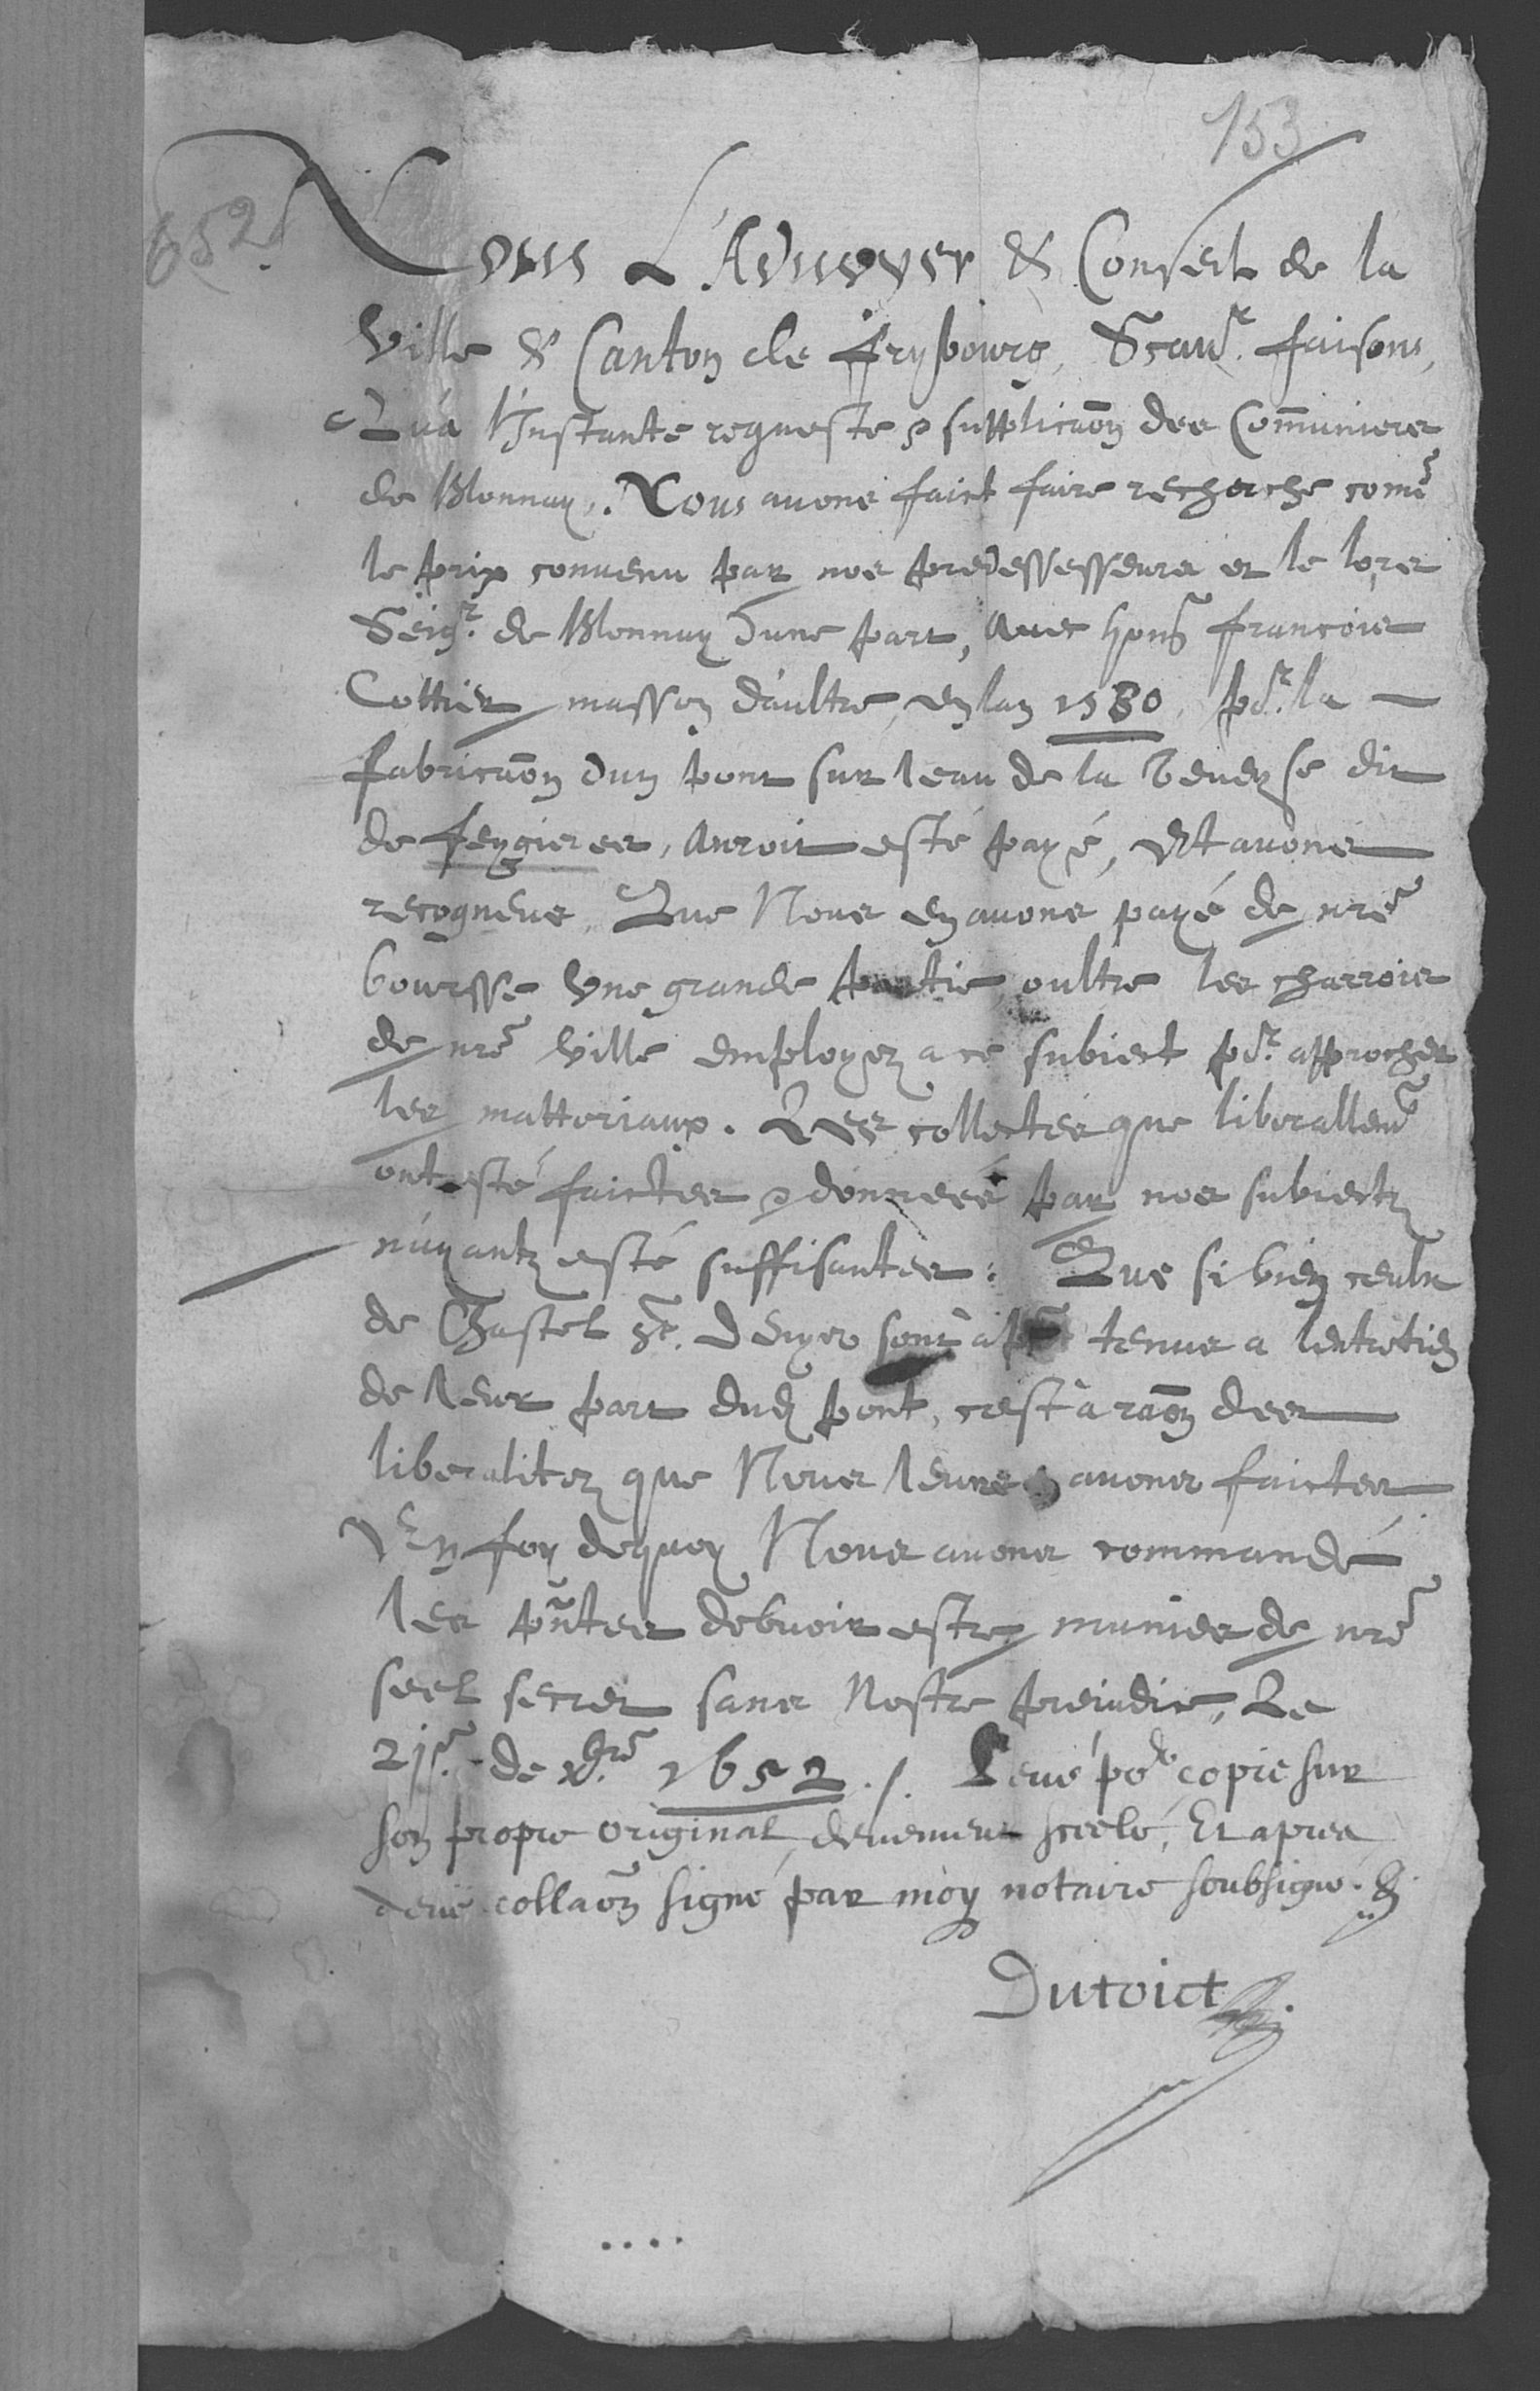 153
652
Nous L'Aduoyer & Conseil de la
Ville & Canton de frybourg, Scauᵣ. faisons,
Qu'a l'Instante requeste & supplicaõn des Com̃uniers
de Blonnay,. Nous auons faict faire recherche com̃e
le prix conuenu par nos predessesseurs et le lors
Seigʳ. de Blonnay d'une part, Auec honˢ francois
Cottier masson d'aultre, en lan 1580, poʳ. la —
fabricaõn dun pont sur leau de la Veueyse dit
de feygieres, Auroit esté payé, Et auons
recogneus, Que Nous en auons payé de nr̃e
bourse Vne grande partie, oultre les charrois
de nr̃e Ville employez a ce subiect poʳ. approcher
les matteriaux. Les collectes que liberallemᵗ
ont esté faictes & donnees par nos subiectz
n'ayantz esté suffisantes. Que si bien ceulx
de Chastel Sᵗ. Denys sont a pñt tenus a lentretien
de leur part dud pont, c'est à raõn des
liberalitez que Nous leurs auons faictes
En foy dequoy Nous auons commandé
les pñtes debuoir estre munies de nr̃e
seel secret sans Nostre preiudice, Le
21ᵉ. de xbr̃e 1652 ./. Leué poʳ copie sur
son propre original, deuement sceelé, Et apres
deuë collaõn signé par moy notaire soubsigné.
Dutoict